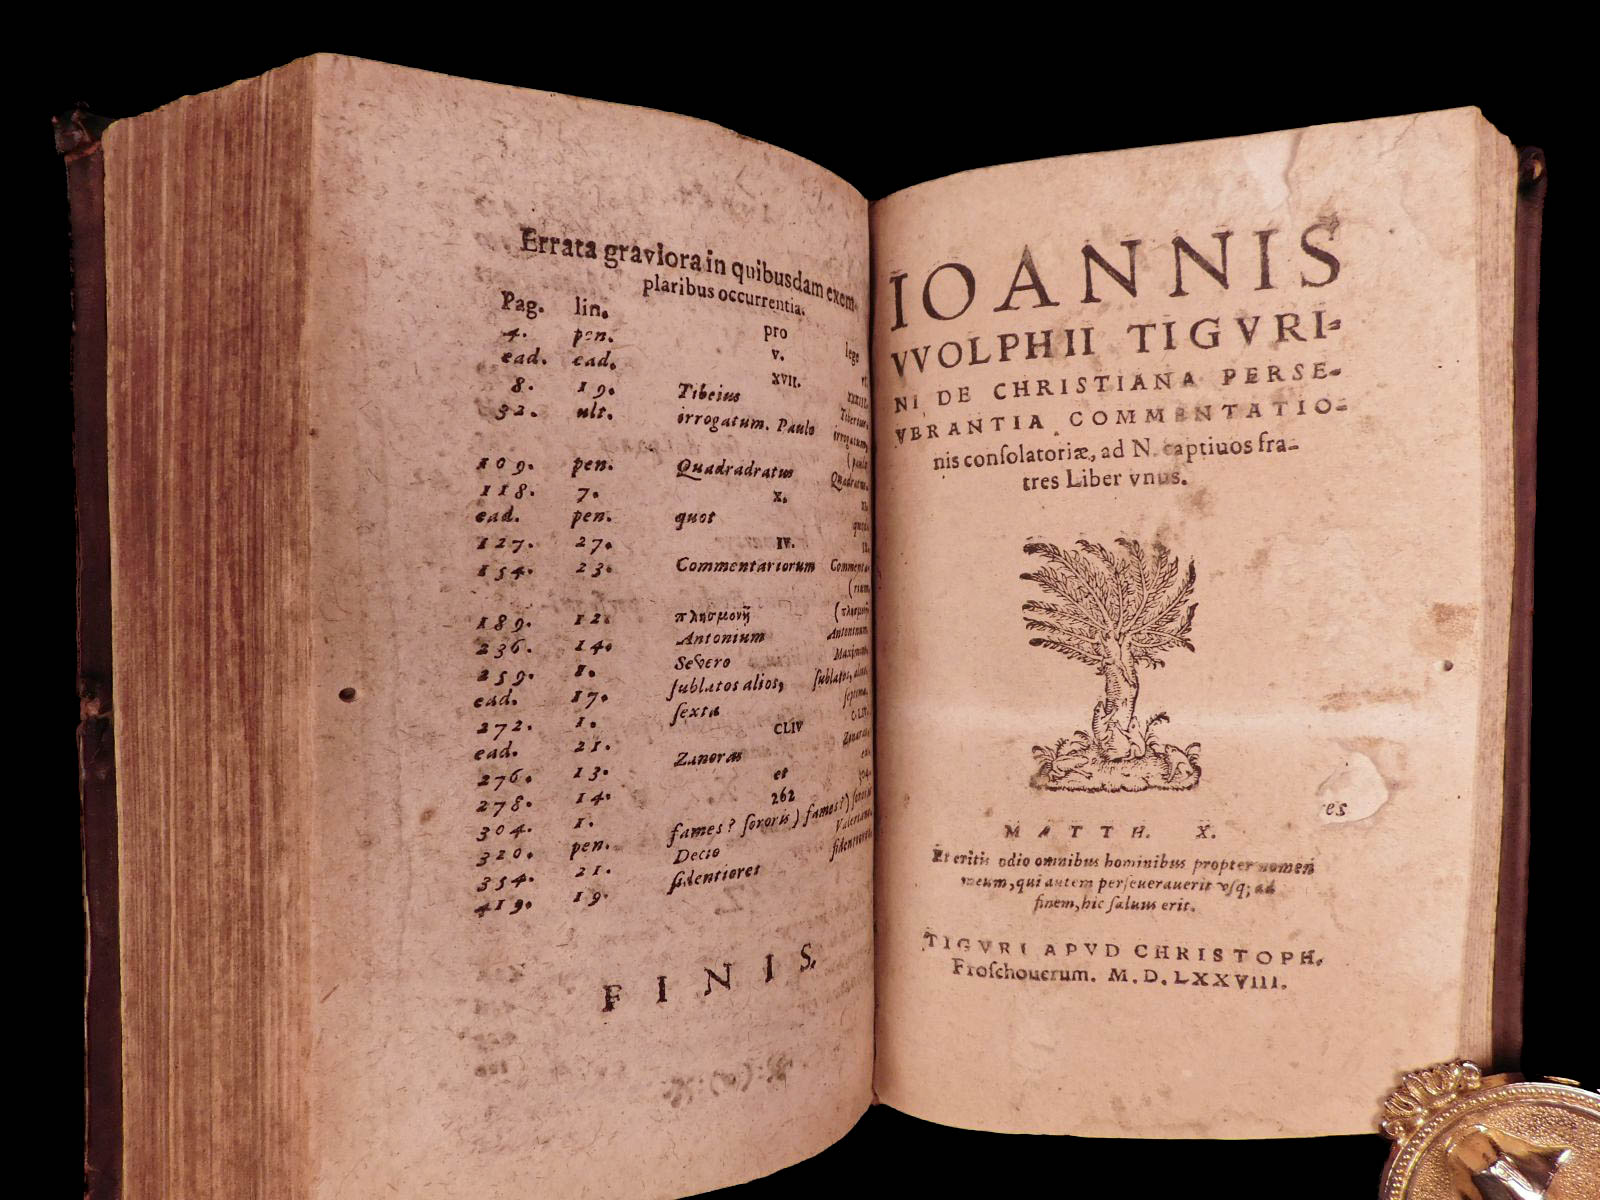 Errata graviora in quibusdam exem-
plaribus occurrentia.
Pag. lin. pro lege
4. pen. v.
ead. ead. xvii.
8. 19. Tibeius
32. ult. irrogatum. Paulo irrogatum,
(paulo
109. pen. Quadradratus
118. 7. x.
ead. pen. quot
127. 27. iv.
154. 23. Commentariorum Commenta-
(rium
189. 12. πλησμονῇ
236. 14. Antonium Antoninum
259. 8. Severo
ead. 17. ſublatos alios, ſublatos, alios
272. 1. ſexta ſeptima
ead. 21. CLIV
276. 13. Zanoras
278. 14. et
304. 1. 262
320. pen. fames? ſororis) fames?)
354. 21. Decio Valeriano
419. 19. fidentioret
FINIS.
IOANNIS
VVOLPHII TIGVRI-
NI DE CHRISTIANA PERSE-
VERANTIA COMMENTATIO-
nis conſolatoriæ, ad N. captiuos fra-
tres Liber vnus.
es
MATTH. X.
Et eritis odio omnibus hominibus propter nomen
meum, qui autem perſeuerauerit vſq; ad
finem, hic ſaluus erit.
TIGVRI APVD CHRISTOPH.
Froſchouerum. M. D. LXXVIII.